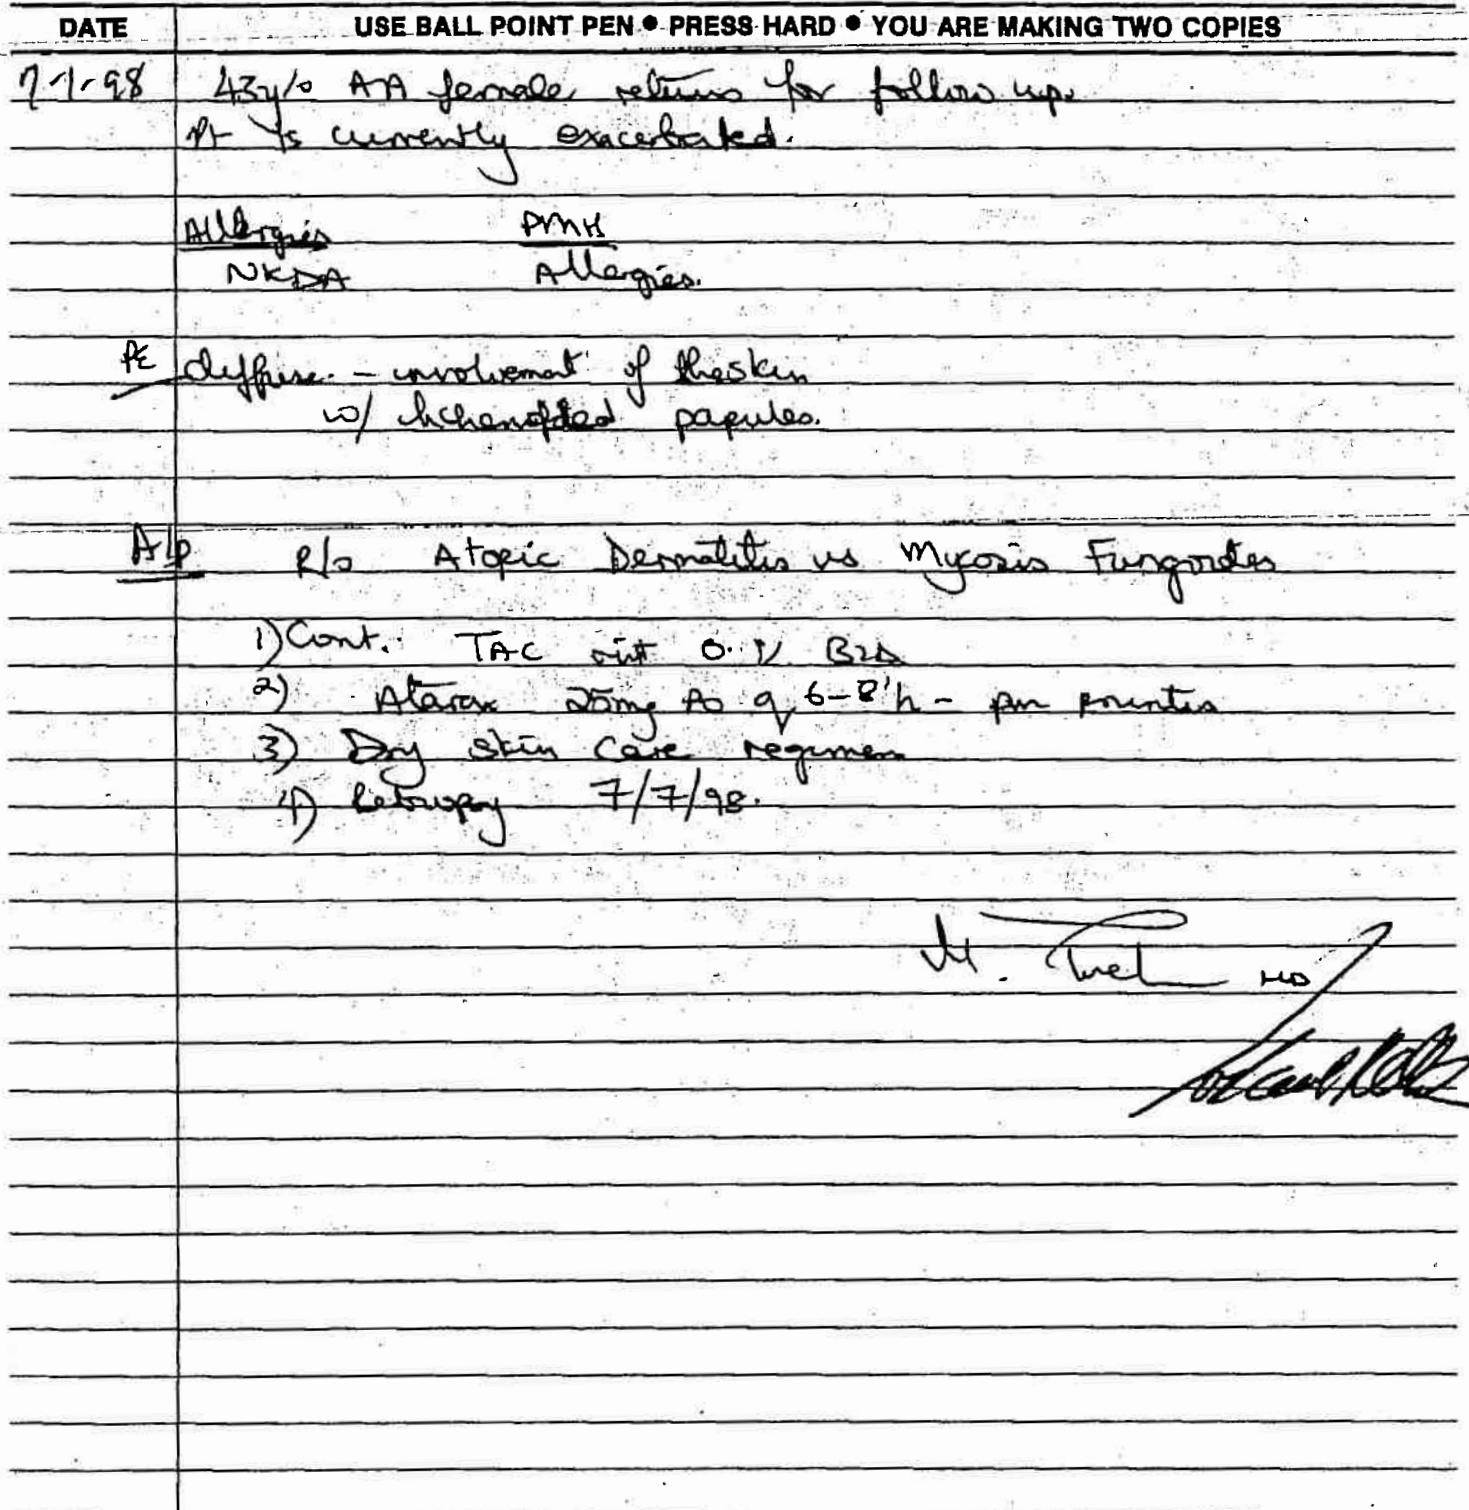 DATE USE BALL POINT PEN ● PRESS HARD ● YOU ARE MAKING TWO COPIES
7-1-98 43y/o AA female returns for follow up.
Pt is currently exacerbated.
Allergies PMH
NKDA Allergies.
PE diffuse - involvement of the skin
w/ lichenified papules.
A/P R/o Atopic Dermatitis vs Mycosis Fungoides
1) Cont. TAC oint 0.1% BID
2) Atarax 25mg PO q 6-8h - prn pruritis
3) Dry skin care regimen
4) Rebiopsy 7/7/98.
M. MD